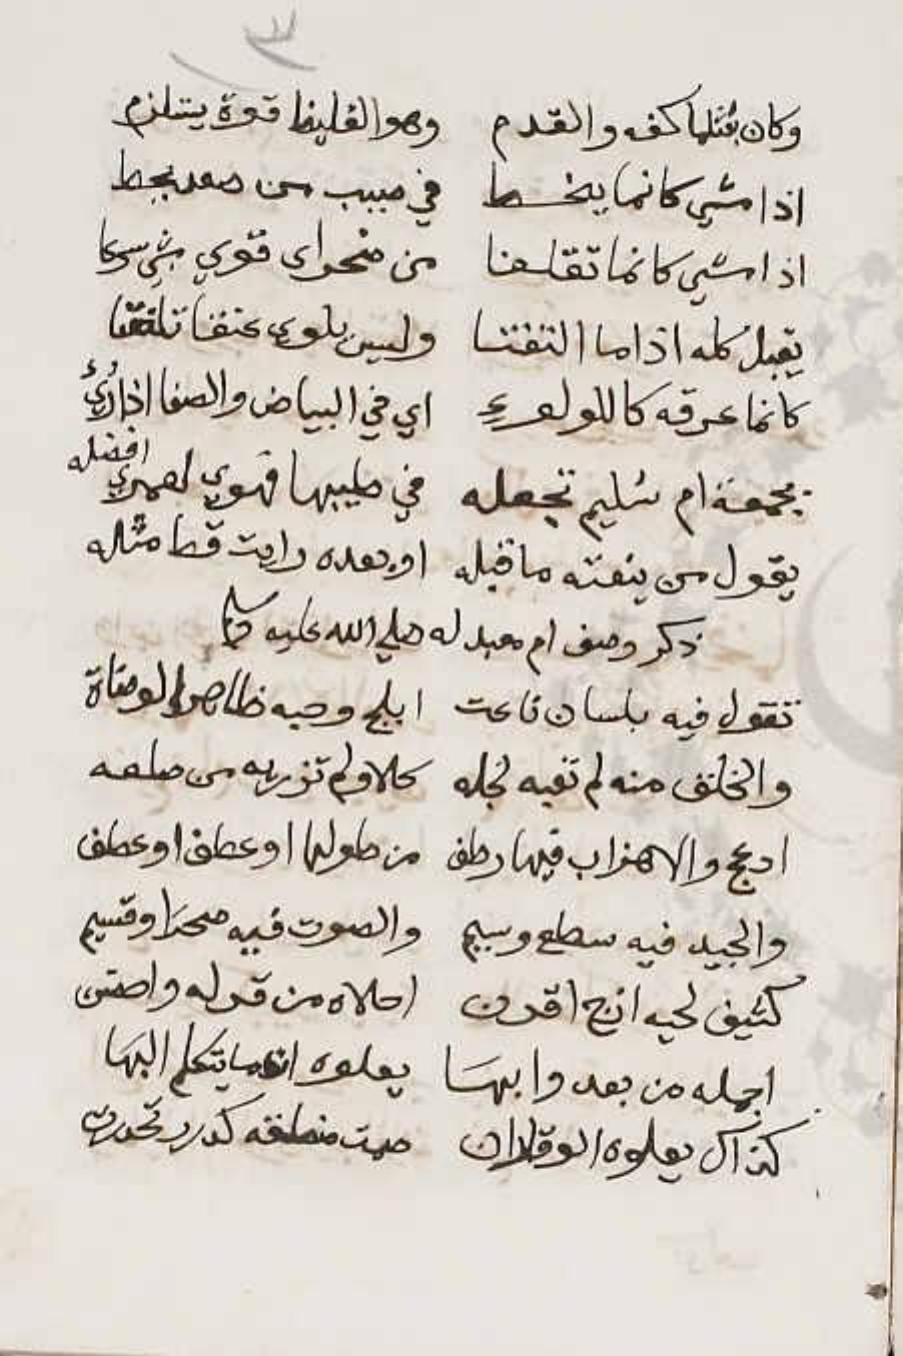 وكان شثنا كفه والقدم وهو الغليظ قوة يستلزم
اذا مشي كانما ينحط في صبب من صعد يحط
اذا مشي كانما تقلعنا من منحواي قوي مشي سرعا
يقبل كله اذا ما التفتا وليس يلوي عنقا تلفتا
كانما عرقه كاللولوء اي في البياض والصفا اذا رئ
يجمعه ام سليم تجعله في طيبها فهوي لعمري افضله
يقول من ينعته ما قبله او بعده رايت قط مثله
ذكر وصف ام معبد له صلي الله عليه وسلم
تقول فيه بلسان ناعت ابلج وجه ظاهر الوضاة
والخلق منه لم تعبه ثجله كلا ولم تزر به من صلعه
ادعج والاهداب فيها وطف من طولها او عطف او غطف
والجيد فيه سطع وسيم والصوت فيه صحل او قسيم
كثيف لحيه ازج اقرن احلاه من قرله واحسن
اجمله من بعد وابهـا يعلوه اذا ما يتكلم البها
كذاك يعلوه الوقار ان صمت منطقه كدرر تحدرت